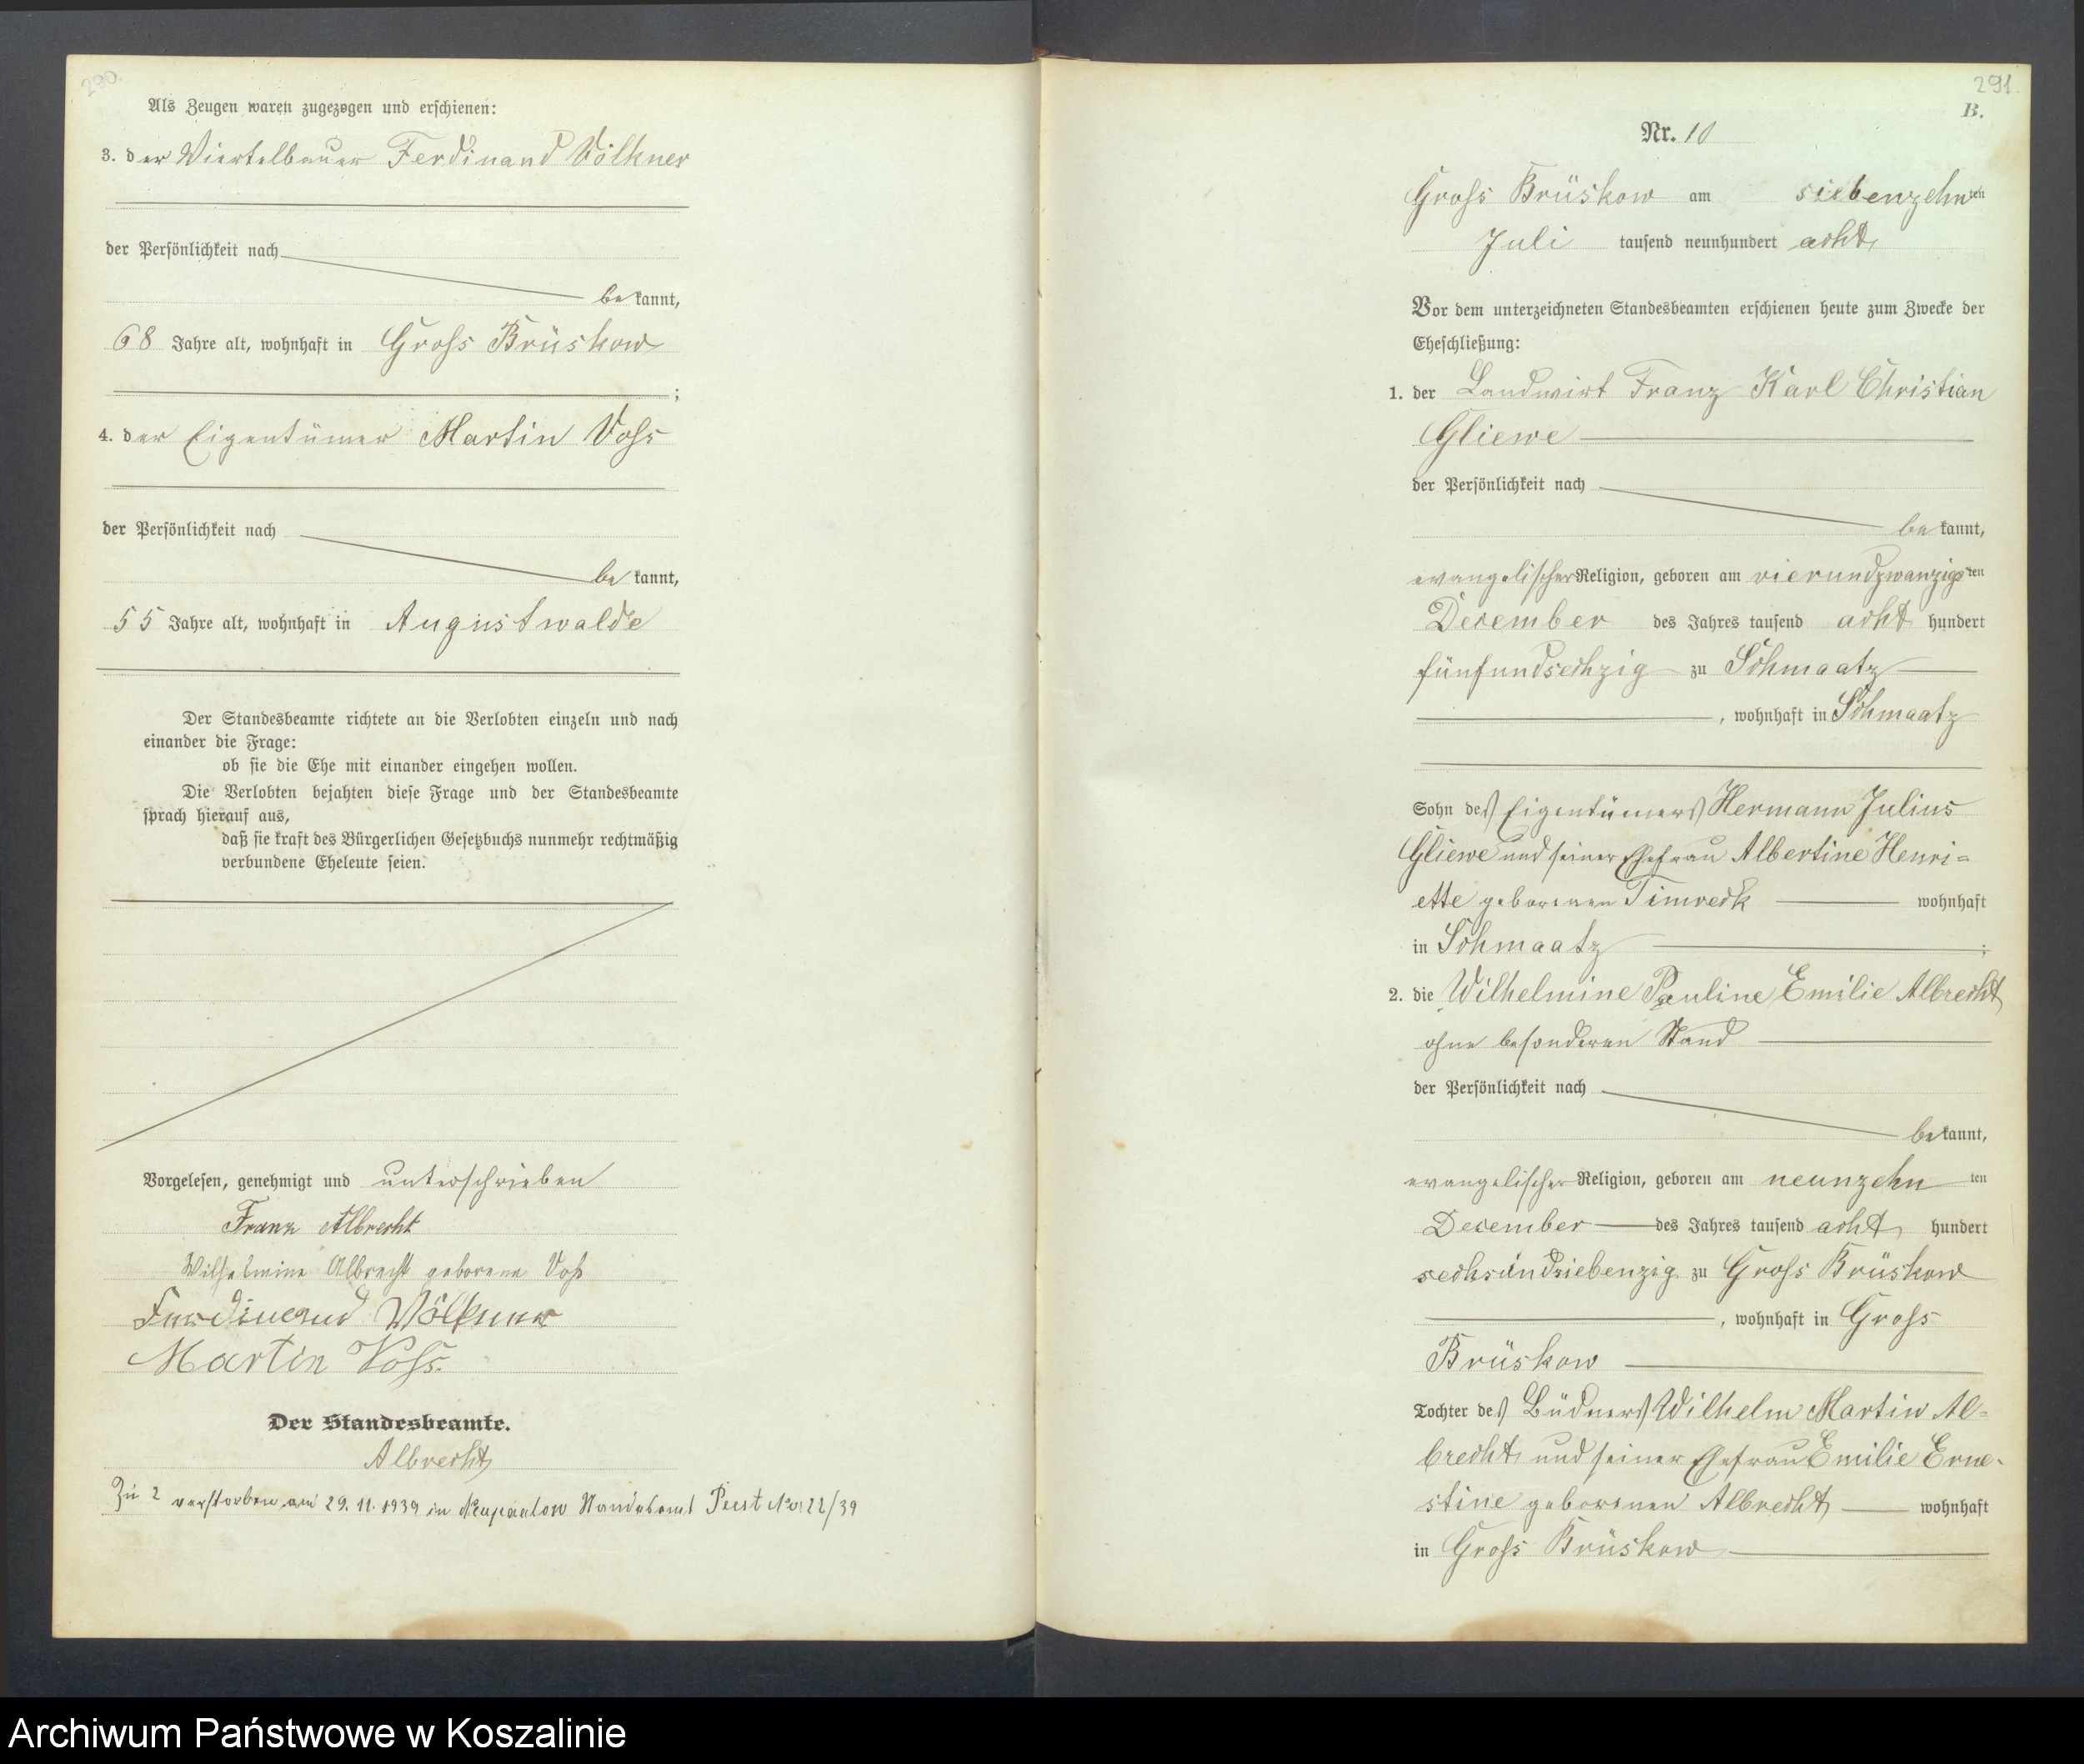 290.
Als Zeugen waren zugezogen und erschienen:
3. der Viertelbauer Ferdinand Völkner
der Persönlichkeit nach
bekannt,
68 Jahre alt, wohnhaft in Groß Brüskow
;
4. der Eigentümer Martin Voß
der Persönlichkeit nach
bekannt,
55 Jahre alt, wohnhaft in Augustwalde
Der Standesbeamte richtete an die Verlobten einzeln und nach
einander die Frage:
ob sie die Ehe mit einander eingehen wollen.
Die Verlobten bejahten diese Frage und der Standesbeamte
sprach hierauf aus,
daß sie kraft des Bürgerlichen Gesetzbuchs nunmehr rechtmäßig
verbundene Eheleute seien.
Vorgelesen, genehmigt und unterschrieben
Franz Albrecht
Wilhelmine Albrecht geborene Voß
Ferdinand Völkner
Martin Voß.
Der Standesbeamte.
Albrecht
Zu 2 verstorben am 29.11.1939 in Standesamt Peest No 22/39
291.
B.
Nr. 10
Groß Brüskow am siebenzehnten
Juli tausend neunhundert acht
Vor dem unterzeichneten Standesbeamten erschienen heute zum Zwecke der
Eheschließung:
1. der Landwirt Franz Karl Christian
Gliewe
der Persönlichkeit nach
bekannt,
evangelischer Religion, geboren am vierundzwanzigsten
Dezember des Jahres tausend acht hundert
fünfundsechzig zu Schmaatz
, wohnhaft in Schmaatz
Sohn des Eigentümers Hermann Julius
Gliewe und seiner Ehefrau Albertine Henri=
ette geborenen Timreck wohnhaft
in Schmaatz ;
2. die Wilhelmine Pauline Emilie Albrecht
ohne besonderen Stand
der Persönlichkeit nach
bekannt,
evangelischer Religion, geboren am neunzehn ten
Dezember des Jahres tausend acht hundert
sechsundsiebenzig zu Groß Brüskow
, wohnhaft in Groß
Brüskow
Tochter des Büdners Wilhelm Martin Al=
brecht und seiner Ehefrau Emilie Erne-
stine geborenen Albrecht wohnhaft
in Groß Brüskow
Archiwum Państwowe w Koszalinie